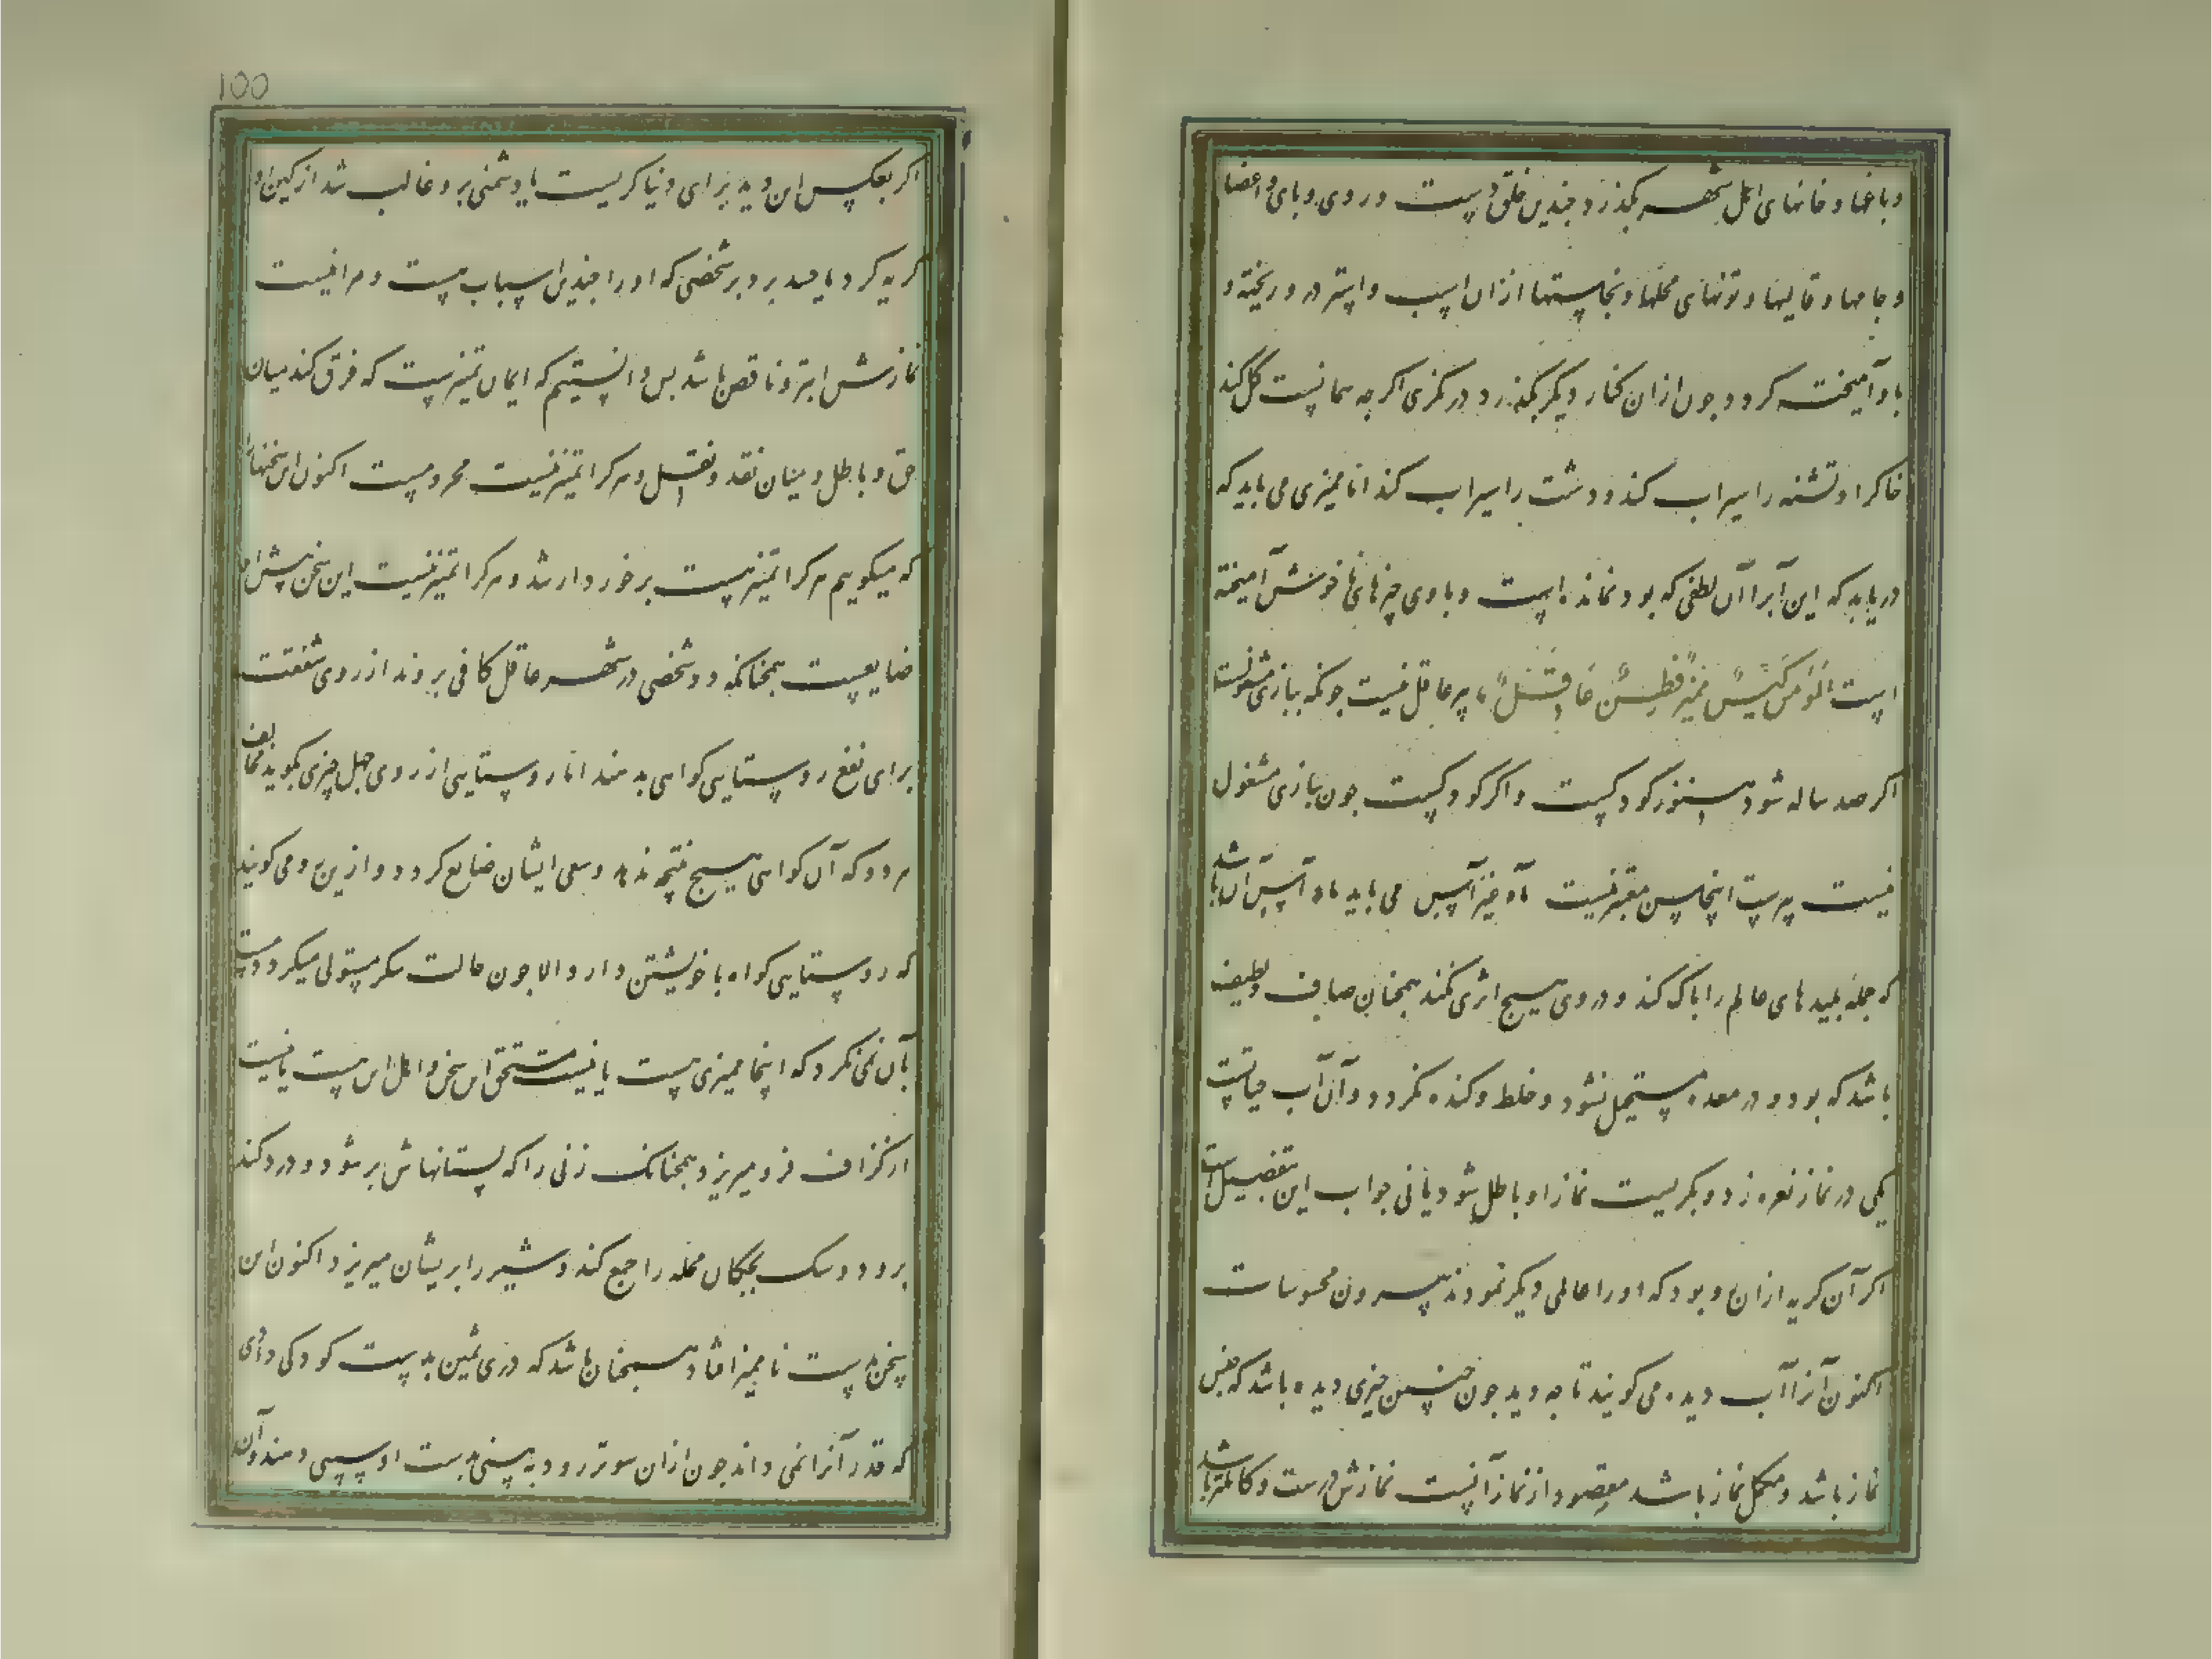 و باغها و خانهای اهل شهر بگذرد و چندین خلق دست و روی و پای و اعضا
و جامها و قالیها و تونهای محلها و نجاستها از ان اسب و استر درو ریخته و
با و آمیخته گردد چون ازان کنار دیگر بگذرد درنگری اگرچه همانست گل کند
خاکرا و تشنه را سیراب کند و دشت را سیراب کند اما ممیزی می باید که
دریابد که این آبرا آن لطفی که بود نمانده است و با وی چیزهای ناخوش آمیخته
است المؤمن کیس ممیز فطن عاقل، پیر عاقل نیست چونکه ببازی مشغولست
اگر صد ساله شود هنوز کودکست و اگر کودکست چون ببازی مشغول
نیست پیرست اینجا سن معتبر نیست ماء غیر آسن می باید ماء آسن آن باشد
که جمله پلیدهای عالم را پاک کند و در وی هیچ اثری نکند همچنان صاف و لطیف
باشد که بود و در معده مستحیل نشود و خلط و گنده نگردد و آن آب حیاتست
یکی در نماز نعره زد و بگریست نماز او باطل شود یا نی جواب این بتفصیل است
اگر آن گریه ازان رو بود که او را عالمی دیگر نمودند بیرون محسوسات
اکنون آنرا آب دیده می گویند تا چه دید چون چنین چیزی دیده باشد که جنس
نماز باشد و مکمل نماز باشد مقصود از نماز آنست نمازش درست و کاملتر باشد
100
اگر بعکس این دید برای دنیا گریست یا دشمنی برو غالب شد از کین او
گریه کرد یا حسد برد بر شخصی که او را چندین اسباب هست و مرا نیست
نمازش ابتر و ناقص باشد پس دانستیم که ایمان تمیزست که فرق کند میان
حق و باطل و میان نقد و نقل و هرکرا تمیز نیست محرومست اکنون این سخنها
که میگوییم هرکرا تمیز هست برخوردار شد و هرکرا تمیز نیست این سخن پیش او
ضایعست همچنانکه دو شخص در شهر عاقل کافی بروند از روی شفقت
برای نفع روستایی گواهی بدهند اما روستایی از روی جهل چیزی بگوید مخالف
هر دو که آن گواهی هیچ نتیجه ندهد و سعی ایشان ضایع گردد و ازین رو می گویند
که روستایی گواه با خویشتن دارد الا چون حالت سکر مستولی میگردد مست
بآن نمی نگرد که اینجا ممیزی هست یا نیست مستحق این سخن و اهل این هست یا نیست
از گزاف فرو میریزد همچنانک زنی را که پستانهاش پر شود و درد کند
برود و سک بچگان محله را جمع کند و شیر را بریشان میریزد اکنون این
سخن بدست نا ممیز افتاد همچنان باشد که دری ثمین بدست کودکی دادی
که قدر آنرا نمی داند چون ازان سوتر رود سیبی بدست او دهند و آن